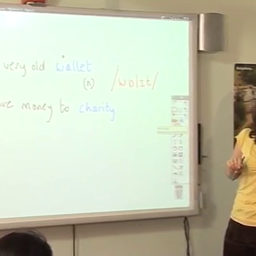 very old wallet
(n) /wɒlɪt/
money to charity